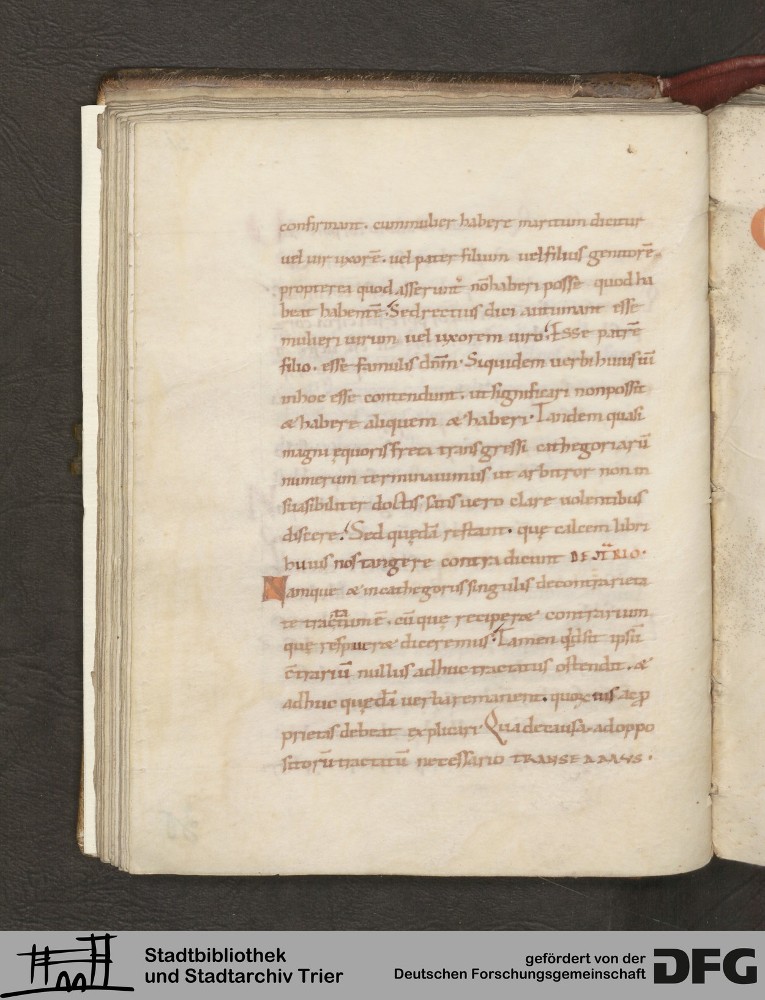 confirmant. cummulier habere maritum dicitur
uel uir uxorē. uel pater filium uel filius genitorē.
propterea quod asserunt nōhaberi posse quod ha
beat habentē. Sed rectius dici autumant esse
mulieri uirum uel uxorem uiro. Esse patrē
filio. esse famulis dnm̄. Siquidem uerbi huius uī
inhoc esse contendunt. ut significari nonpossit
& habere aliquem & haberi. Tandem quasi
magni ęquoris freta transgressi cathegoriarū
numerum terminauimus ut arbitror non in
suasibiliter doctis satis uero clare uolentibus
discere. Sed quędā restant. quę calcem libri
huius nos tangere contradicunt DE ꝯTRIO.
Namque & in cathegoriis singulis decontrarieta
te tractatum ē. cū quę reciper& contrarium
quę respuer& diceremus. Tamen qd sit ipsū
c̄trariū nullus adhuc tractatus ostendit. &
adhuc quędā uerba remanent. quoꝝ ius ac p
prietas debeat explicari. Qua de causa. ad oppo
sitorū tractatū necessario TRANSEAMUS.
Stadtbibliothek
und Stadtarchiv Trier
gefördert von der
Deutschen Forschungsgemeinschaft
DFG